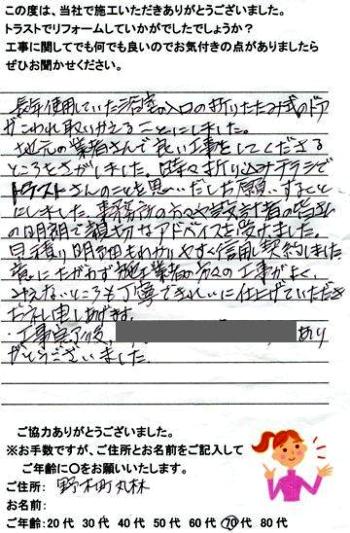 この度は、当社で施工いただきありがとうございました。
トラストでリフォームしていかがでしたでしょうか？
工事に関してでも何でも良いのでお気付きの点がありましたら
ぜひお聞かせください。
長年使用していた浴室の入口の折りたたみ式のドア
がこわれ取りかえることにしました。
地元の業者さんで良い工事をしてくださる
ところをさがしました。時々折り込みチラシで
トラストさんのことを思いだしお願いすること
にしました。事務所の方々や設計者の皆さん
の明朗で親切なアドバイスを受けました。
見積り明細もわかりやすく信用し契約しました
意にたがわず施工業者の方々の工事がよく、
みえないところも丁寧できれいに仕上げていただき
お礼申し上げます。
・工事完了後、
あり
がとうございました。
ご協力ありがとうございました。
※お手数ですが、ご住所とお名前をご記入して
ご年齢に○をお願いいたします。
ご住所： 野木町丸林
お名前：
ご年齢：20代 30代 40代 50代 60代 70代 80代